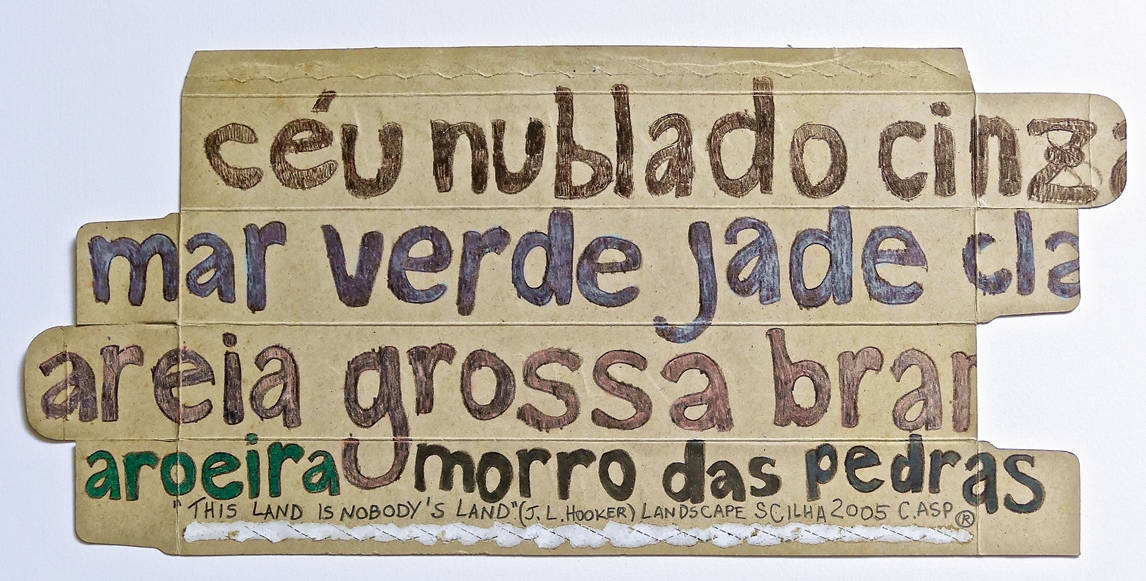 céu nublado cinza
mar verde jade cla
areia grossa bran
aroeira morro das pedras
"THIS LAND IS NOBODY'S LAND" (J. L. HOOKER) LANDSCAPE SCILHA 2005 C.ASP ®